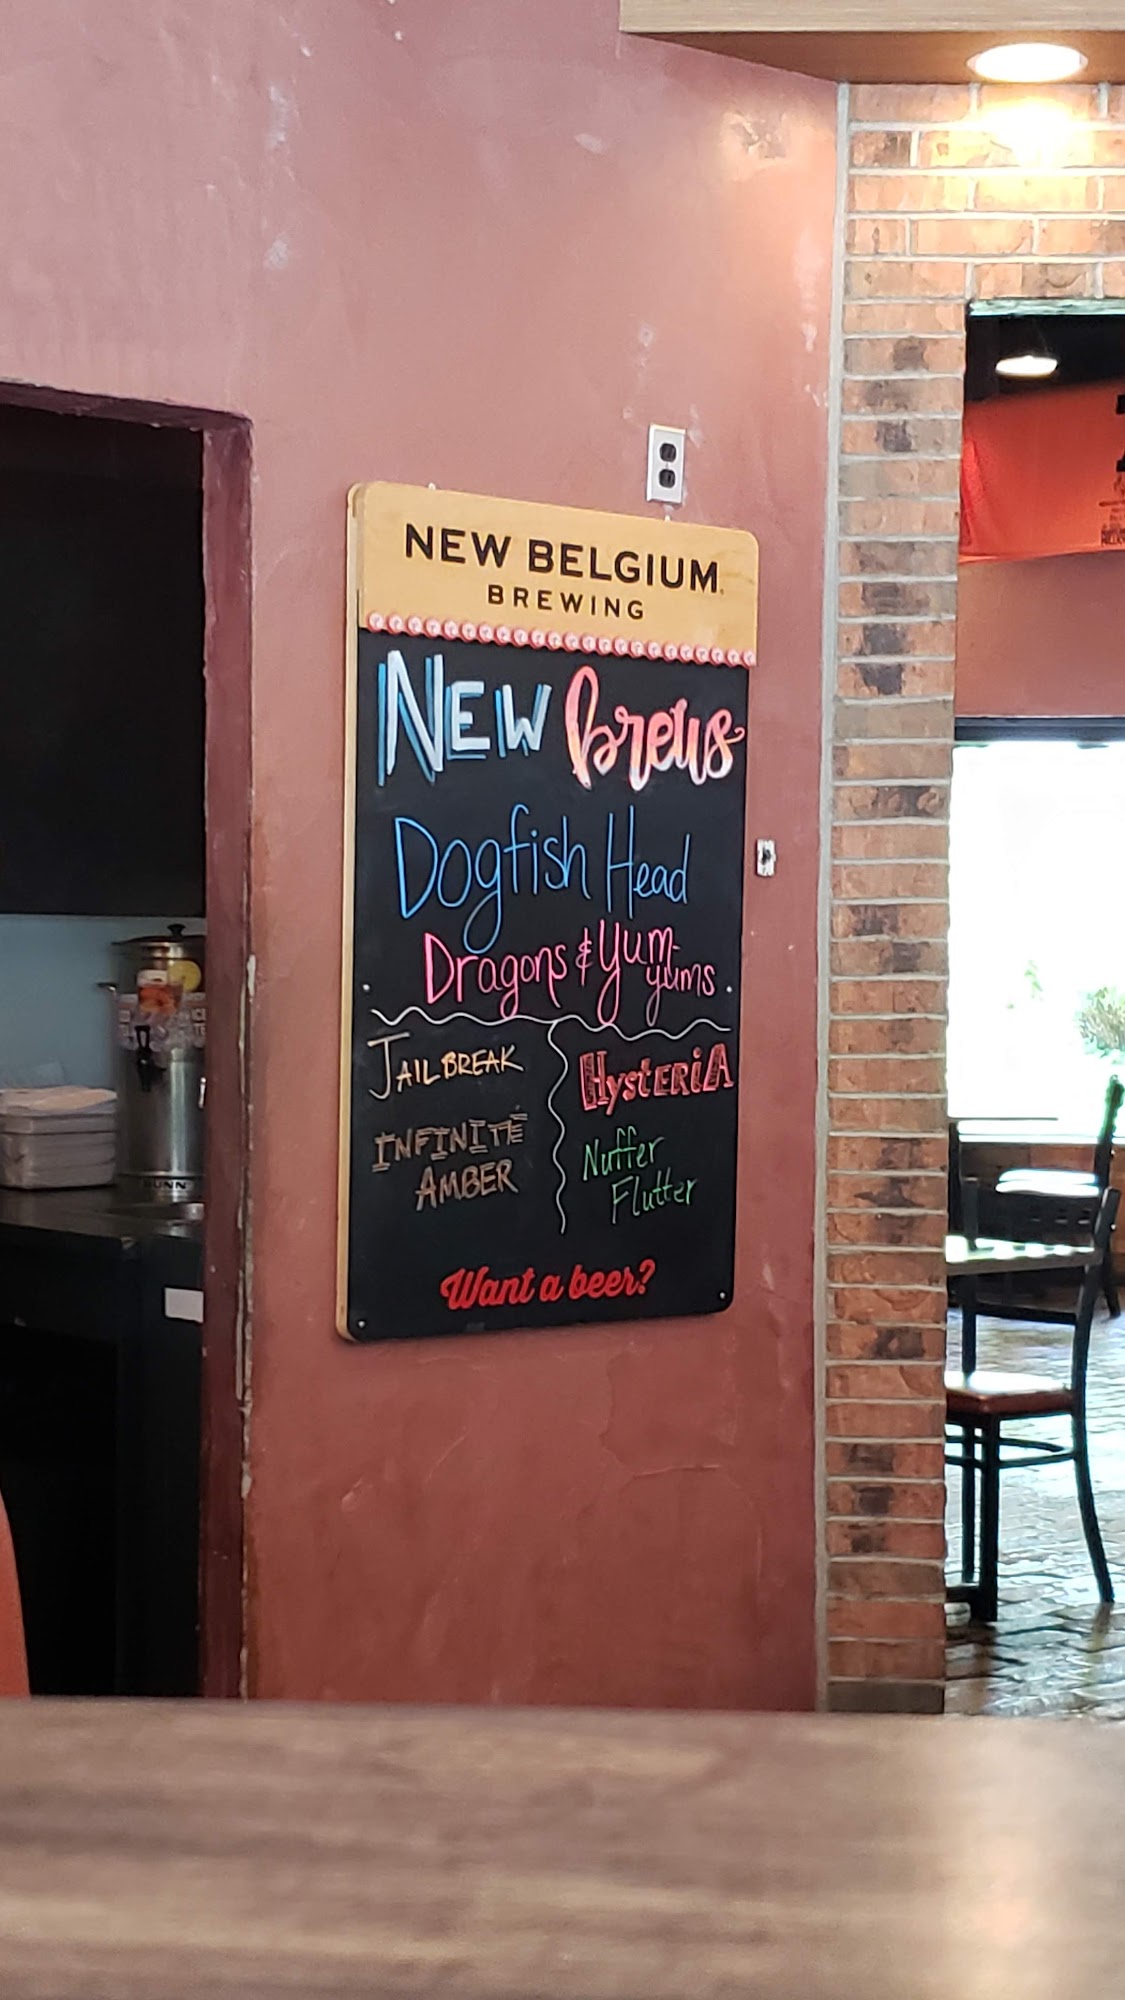 NEW BELGIUM
BREWING
NEW brews
Dogfish Head
Dragons & Yum-
yums
JAILBREAK
INFINITE
AMBER
HysteriA
Nuffer
Flutter
Want a beer?
BUNN